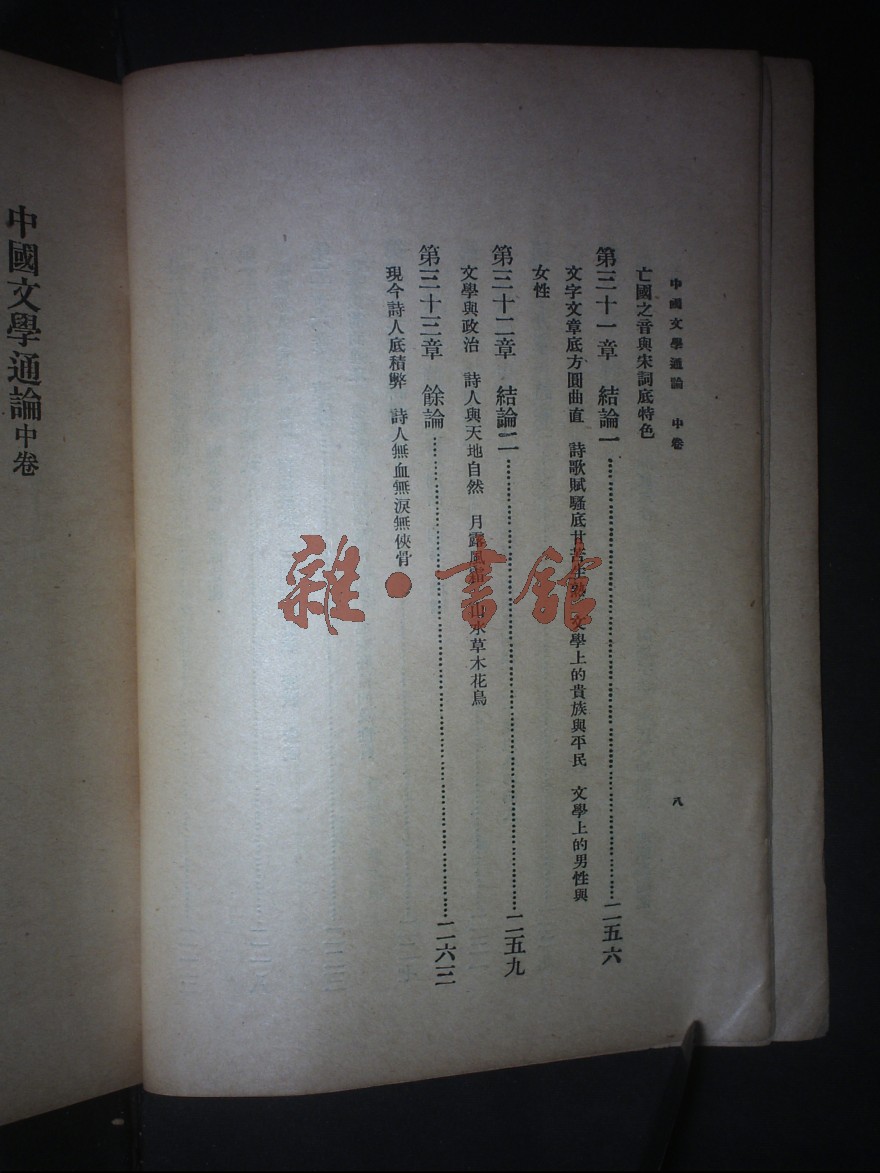 中國文學通論 中卷
八
亡國之音與宋詞底特色
第三十一章 結論一……二五六
文字文章底方圓曲直 詩歌賦騷底甘苦生熟 文學上的貴族與平民 文學上的男性與
女性
第三十二章 結論二……二五九
文學與政治 詩人與天地自然 月露風 山水草木花鳥
第三十三章 餘論……二六三
現今詩人底積弊 詩人無血無淚無俠骨
中國文學通論中卷
雜·書館